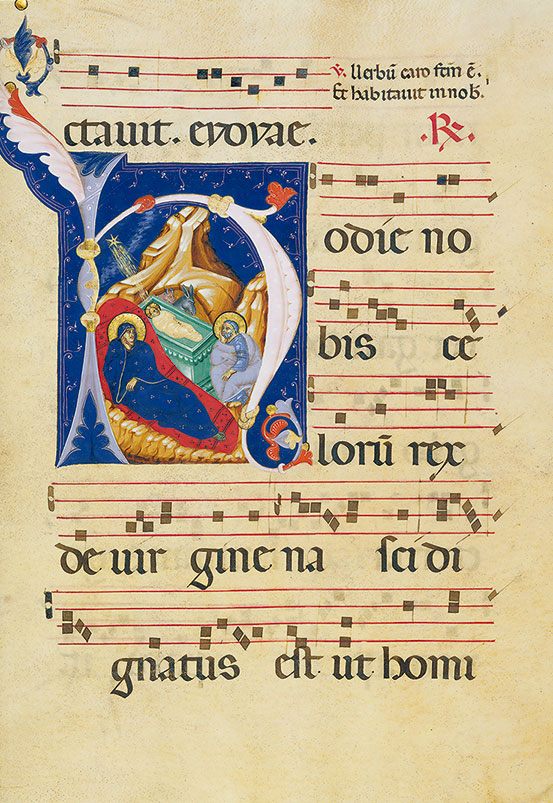 ℣. Uerbū caro fcm̄ ē.
Et habitauit in nob̄.
ctauit. evovae. .℞.
Hodie no
bis ce
lorū rex
de uir gine na sci di
gnatus est ut homi